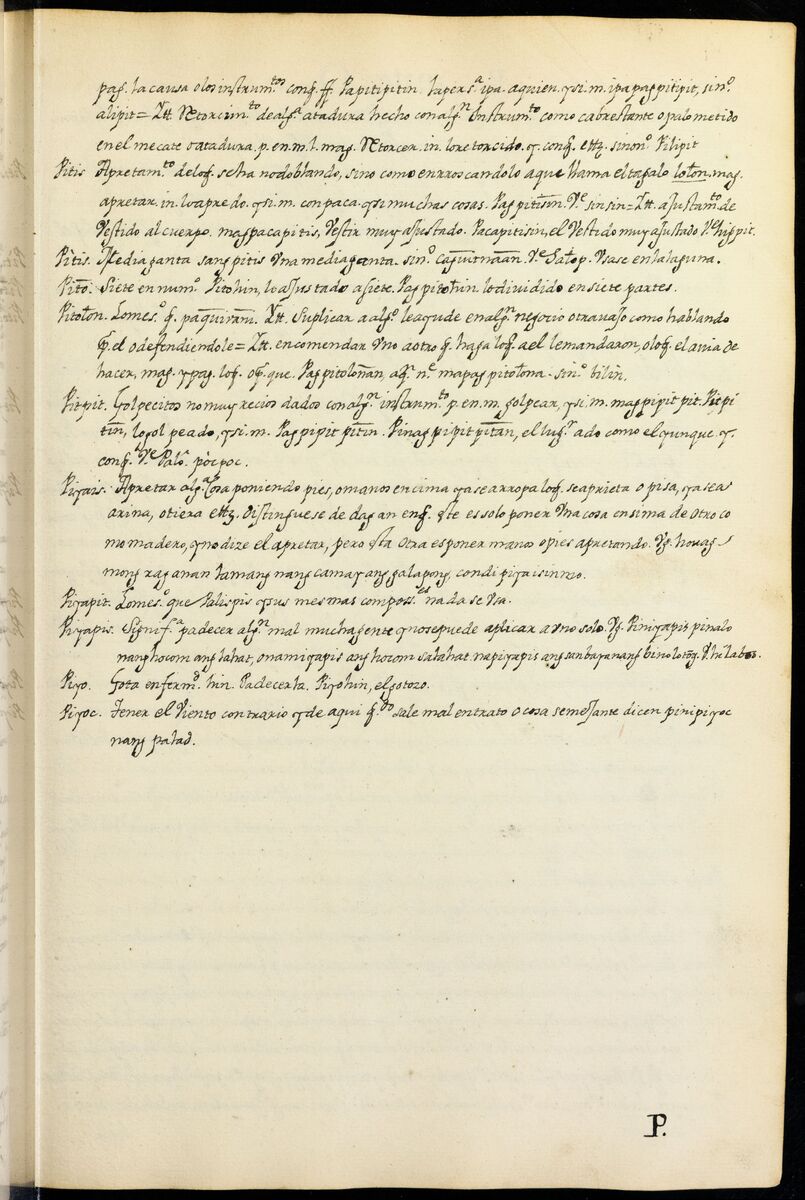 pag. la causa o los instrum.tos con q. ss. Papitipitin. la pers.a ipa. a quien, y si. m. ipa pag pitipit, sin.o
alipit = Itt. Retorcim.to de alg.a atadura hecho con alg.n Instrum.to como cabrestante o palo metido
en el mecate o atadura. p. en. m. l. mag. Retorcer. in. lo retorcido. y. con q. ettz. sinon.o Pilipit
Pitis. Apretam.to de lo q. se ha nodoblando, sino como enrroscandolo a que llama el tagalo loton. mag.
apretar. in. lo apre.do. y si. m. con paca. y si muchas cosas. Pag pitisin. V.e sinsin = Itt. ajustam.to de
Vestido al cuerpo. magpacapitis, Vestir muy ajustado. Pacapitisin, el Vestido muy ajustado V.e higpit.
Pitis. Media ganta sang pitis Vna media ganta. sin.o V.e Salop. Vsase en la laguna.
Pito. Siete en num.o Pitohin, lo ajustado a siete. Pag pitohin lo dividido en siete partes.
Pitolon. Lomes.o q. Itt. Suplicar a alg.o le ayude en alg.n negocio o travajo como hablando
p.r el o defendiendole = Itt. encomendar Vno a otro q. haga lo q. a el le mandaron, o lo q. el avia de
hacer, mag. y pag. lo q. o p.r que. Pag pitolonan, aq.n n.e mapag pitolona. sin.o bilin.
Pitpit. Golpecitos no muy recios dados con alg.n instrum.to p. en. m. golpear, y si. m. mag pipit pit. Pitpi
tin, lo golpeado, y si. m. Pag pipit pitin. Pinag pipit pitan, el lug.r ado como el yunque. y.
con q. V.e Palo. pòcpoc.
Piyais. Apretar alg.a Cosa poniendo pies, o manos encima y a se arropa lo q. se aprieta o pisa, ya sea
arina, o tiera ettz. Distinguese de dag an en q. este es solo poner Vna cosa en sima de otro co
mo madero, y no dize el apretar, pero esta otra es poner manos o pies apretando. Vg. houag
mong yag anan lamang nang camay ang galapong, condi piyaisin mo.
Piyapit. Lomes.o que Palispis y sus mesmas compos.es nada se Vsa.
Piyapis. Signif.a padecer alg.n mal mucha gente y no se puede aplicar a vno solo. Vg. Piniyapis pinalo
nang hocom ang lahat, o namiyapis ang hocom sa lahat. napiyapis ang sanbayanang binolotong. V.e
Piyo. Gota enferm.d hin. Padecerla. Piyohin, el gotozo.
Piyoc. Tener el Viento contrario y de aqui q.do sale mal en trato o cosa semejante dicen pinipiyoc
nang palad.
P.